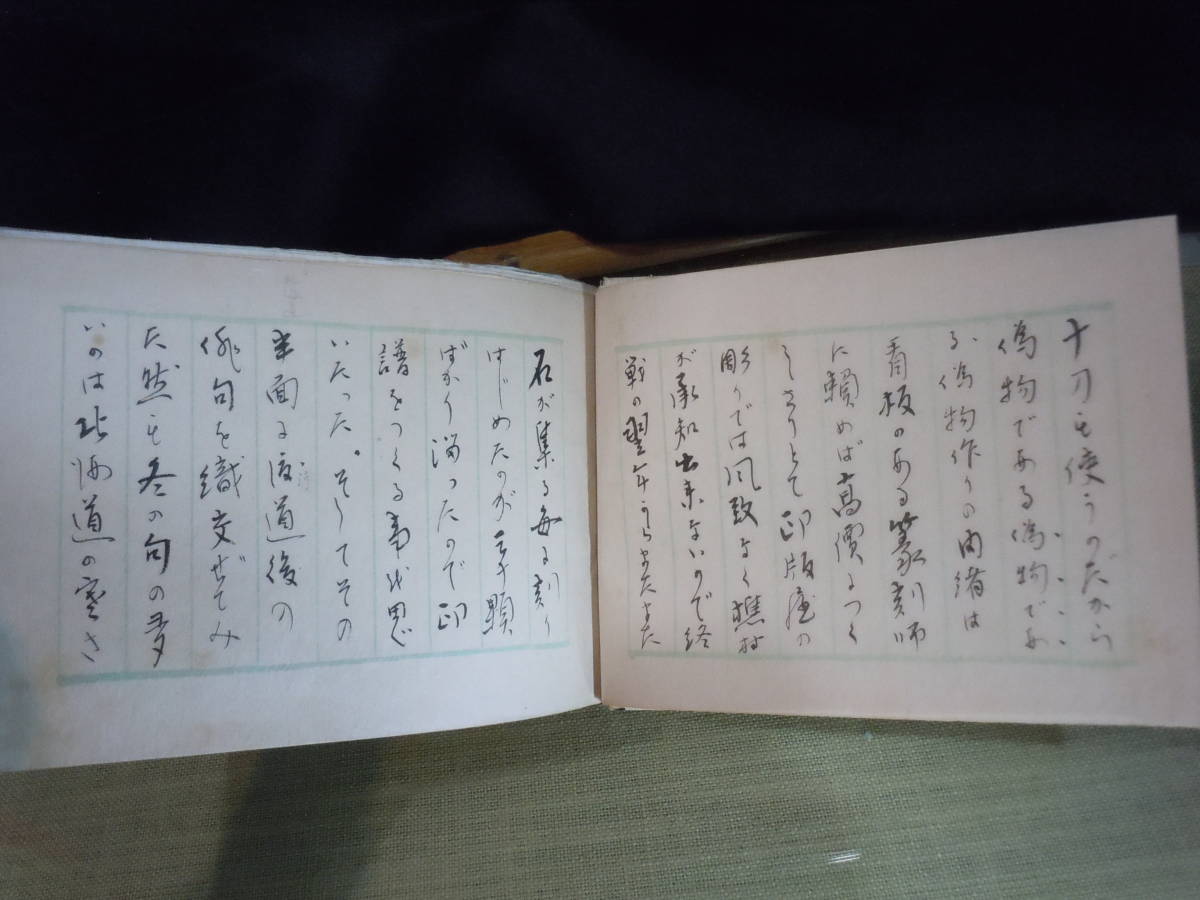 十刀も使うのだから
偽物である偽物であ
る、偽物作りの内緒は
看板のある篆刻師
に頼めば高價につく
しさりとて印版屋の
彫りでは風致なく樵村
が承知出来ないので終
戦の翌年からまたまた
石が集る毎に刻り
はじめたのが 顆
ばかり溜ったので印
譜をつくる事を思ひ
いたった。そしてその
半面に渡道後の
俳句を織交ぜてみ
た然も冬の句の多
いのは北海道の寒さ